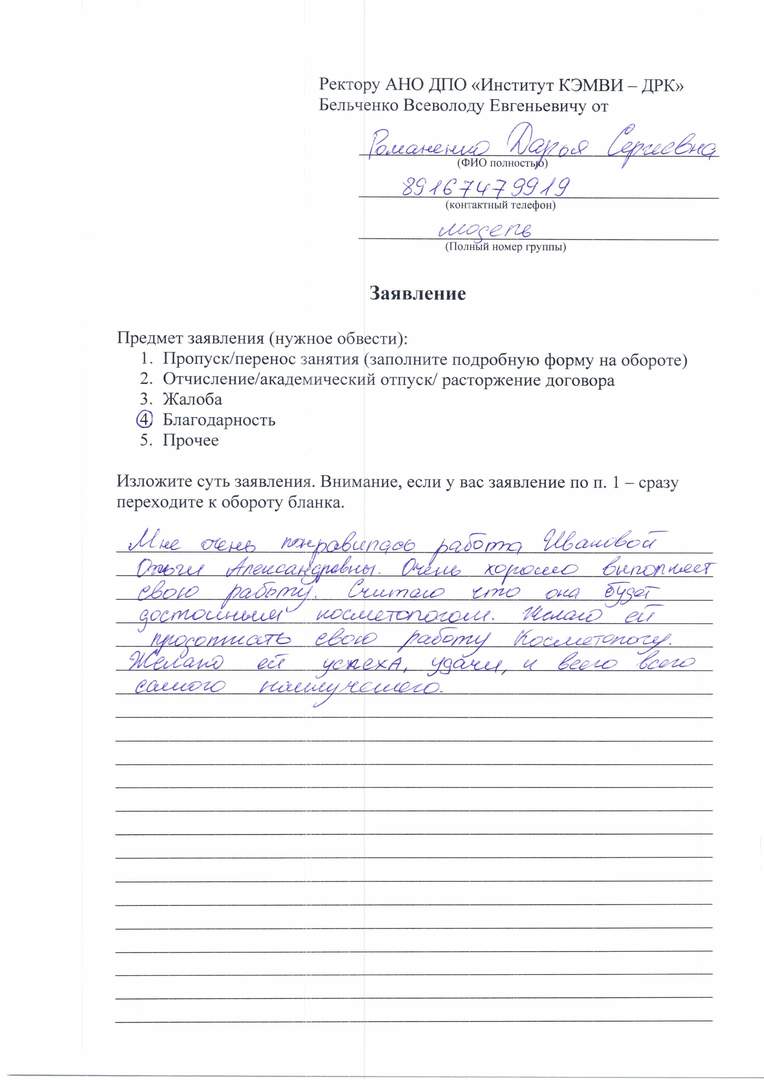 Ректору АНО ДПО «Институт КЭМВИ – ДРК»
Бельченко Всеволоду Евгеньевичу от
Романенко Дарья Сергеевна
(ФИО полностью)
89167479919
(контактный телефон)
модель
(Полный номер группы)
Заявление
Предмет заявления (нужное обвести):
1. Пропуск/перенос занятия (заполните подробную форму на обороте)
2. Отчисление/академический отпуск/ расторжение договора
3. Жалоба
4. Благодарность
5. Прочее
Изложите суть заявления. Внимание, если у вас заявление по п. 1 – сразу
переходите к обороту бланка.
Мне очень понравилась работа Ивановой
Ольги Александравны. Очень хорошо выполняет
свою работу. Считаю что она будет
достойным косметологом. Желаю ей
продолжать свою работу Косметологу.
Желаю ей успеха, удачи, и всего всего
самого наилучшего.